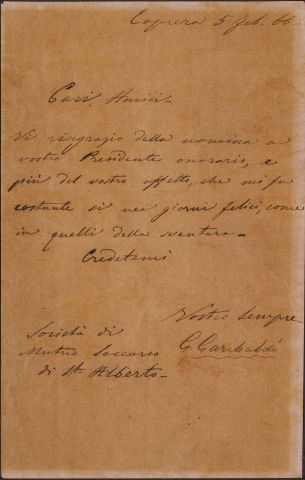 Caprera 5 feb. 66
Cari Amici
Vi ringrazio della nomina a
vostro Presidente onorario, e
più del vostro affetto, che mi fu
costante sì nei giorni felici, come
in quelli della sventura.
Credetemi
Vostro sempre
G Garibaldi
Società di
Mutuo Soccorso
di St Alberto